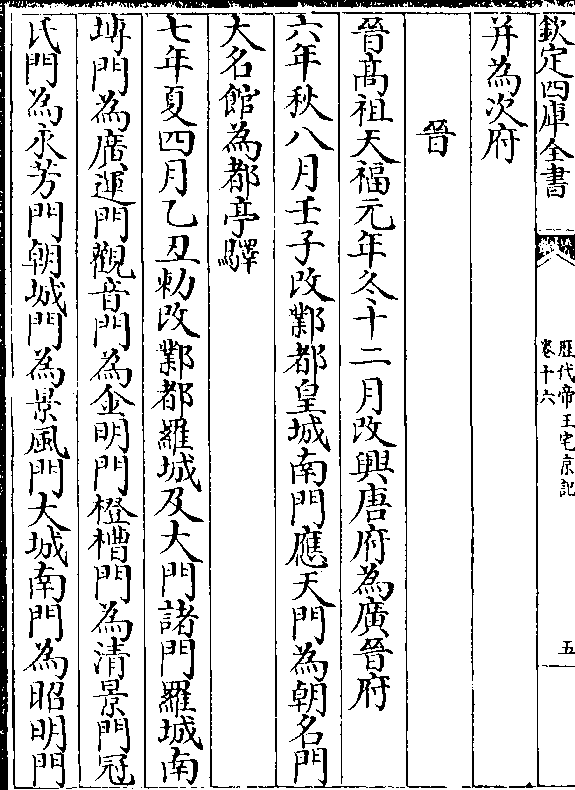 欽定四庫全書
歷代帝王宅京記
卷十六
五
并為次府
晉
晉髙祖天福元年冬十二月改興唐府為廣晉府
六年秋八月壬子改鄴都皇城南門應天門為朝名門
大名館為都亭驛
七年夏四月乙丑勅改鄴都羅城及大門諸門羅城南
塼門為廣運門觀音門為金明門橙槽門為清景門冠
氏門為永芳門朝城門為景風門大城南門為昭明門